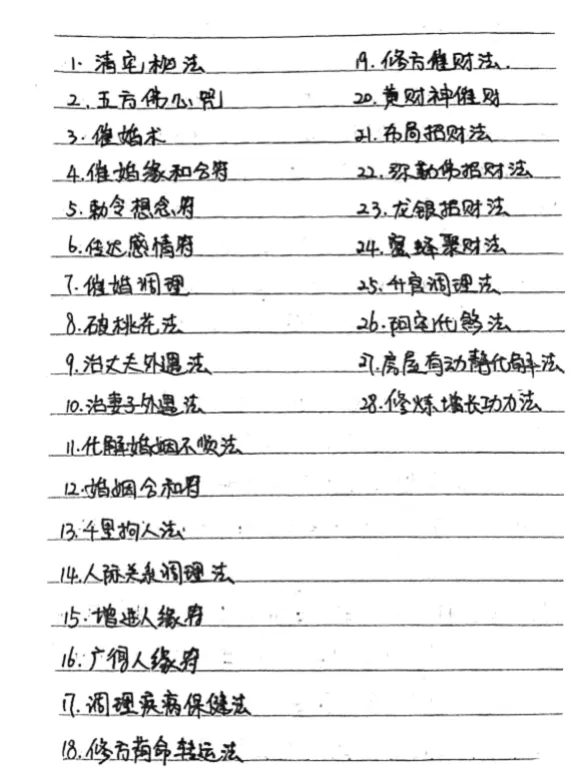 1. 清宅秘法
2. 五方佛心咒
3. 催婚术
4. 催婚缘和合符
5. 勅令想念符
6. 传达感情符
7. 催婚调理
8. 破桃花法
9. 治丈夫外遇法
10. 治妻子外遇法
11. 化解婚姻不顺法
12. 婚姻合和符
13. 千里拘人法
14. 人际关系调理法
15. 增进人缘符
16. 广得人缘符
17. 调理疾病保健法
18. 修方荷命转运法
19. 修方催财法.
20. 黄财神催财
21. 布局招财法
22. 弥勒佛招财法
23. 龙银招财法
24. 蜜蜂聚财法
25. 升官调理法
26. 阳宅化煞法
27. 房屋有动静化解法
28. 修炼增长功力法